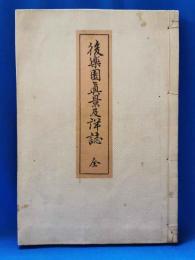 後樂園眞景及詳誌 全